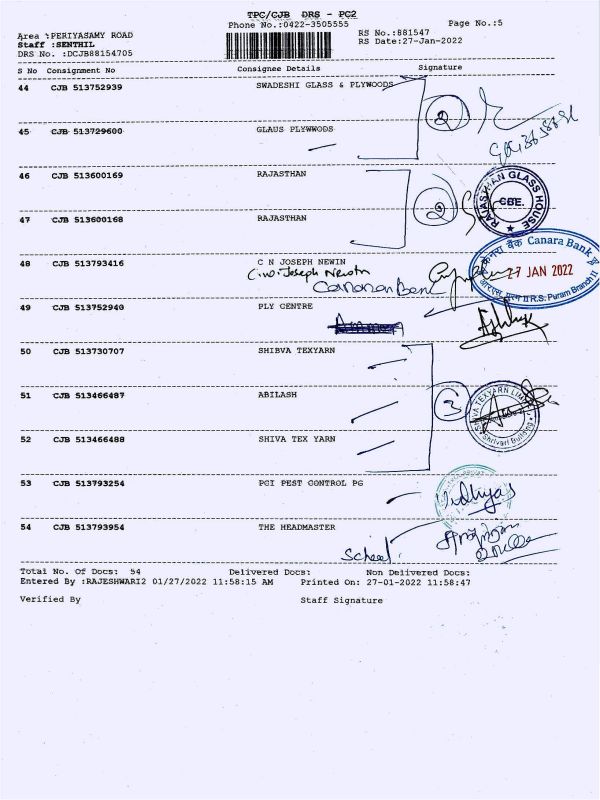 TPC/CJB DRS - PC2
Phone No.:0422-3505555
Page No.:5
Area :PERIYASAMY ROAD
RS No.:881547
Staff :SENTHIL
RS Date:27-Jan-2022
DRS No. :DCJB88154705
S No Consignment No Consignee Details Signature
44 CJB 513752939 SWADESHI GLASS & PLYWOODS
2
45 CJB 513729600 GLAUS PLYWWODS
46 CJB 513600169 RAJASTHAN
2
RAJASTHAN GLASS HOUSE
CBE.
47 CJB 513600168 RAJASTHAN
केनरा बैंक Canara Bank
48 CJB 513793416 C N JOSEPH NEWIN
27 JAN 2022
R.S. Puram Branch II
49 CJB 513752940 PLY CENTRE
50 CJB 513730707 SHIBVA TEXYARN
51 CJB 513466487 ABILASH
3
SHIVA TEXYARN LIMITED
Shrivari Building
52 CJB 513466488 SHIVA TEX YARN
53 CJB 513793254 PCI PEST CONTROL PG
Vidhyas
54 CJB 513793954 THE HEADMASTER
School
Total No. Of Docs: 54 Delivered Docs: Non Delivered Docs:
Entered By :RAJESHWARI2 01/27/2022 11:58:15 AM Printed On: 27-01-2022 11:58:47
Verified By Staff Signature